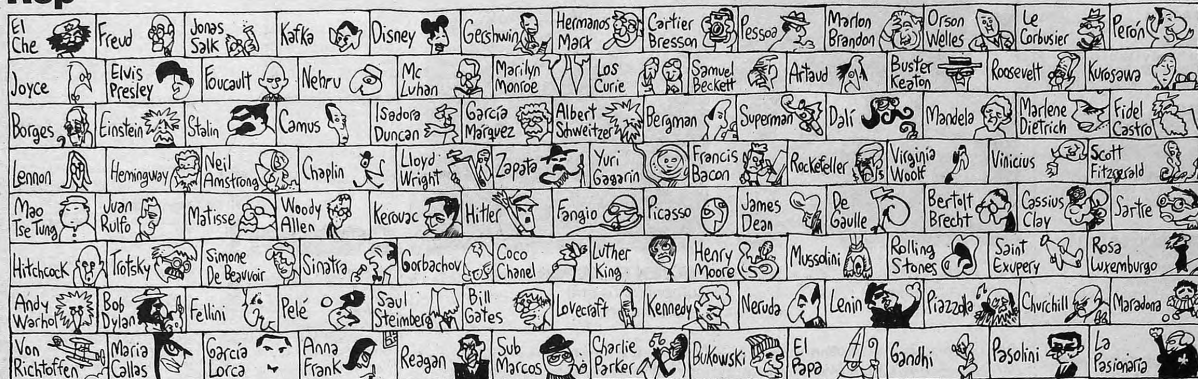 Rep
El Che
Freud
Jonas Salk
Kafka
Disney
Gershwin
Hermanos Marx
Cartier Bresson
Pessoa
Marlon Brandon
Orson Welles
Le Corbusier
Perón
Joyce
Elvis Presley
Foucault
Nehru
Mc Luhan
Marilyn Monroe
Los Curie
Samuel Beckett
Artaud
Buster Keaton
Roosevelt
Kurosawa
Borges
Einstein
Stalin
Camus
Isadora Duncan
García Márquez
Albert Schweitzer
Bergman
Superman
Dalí
Mandela
Marlene Dietrich
Fidel Castro
Lennon
Hemingway
Neil Amstrong
Chaplin
Lloyd Wright
Zapata
Yuri Gagarin
Francis Bacon
Rockefeller
Virginia Woolf
Vinicius
Scott Fitzgerald
Mao Tse Tung
Juan Rulfo
Matisse
Woody Allen
Kerouac
Hitler
Fangio
Picasso
James Dean
De Gaulle
Bertolt Brecht
Cassius Clay
Sartre
Hitchcock
Trotsky
Simone De Beauvoir
Sinatra
Gorbachov
Coco Chanel
Luther King
Henry Moore
Mussolini
Rolling Stones
Saint Exupery
Rosa Luxemburgo
Andy Warhol
Bob Dylan
Fellini
Pelé
Saul Steimberg
Bill Gates
Lovecraft
Kennedy
Neruda
Lenin
Piazzolla
Churchill
Maradona
Von Richtoffen
Maria Callas
García Lorca
Anna Frank
Reagan
Sub Marcos
Charlie Parker
Bukowski
El Papa
Gandhi
Pasolini
La Pasionaria